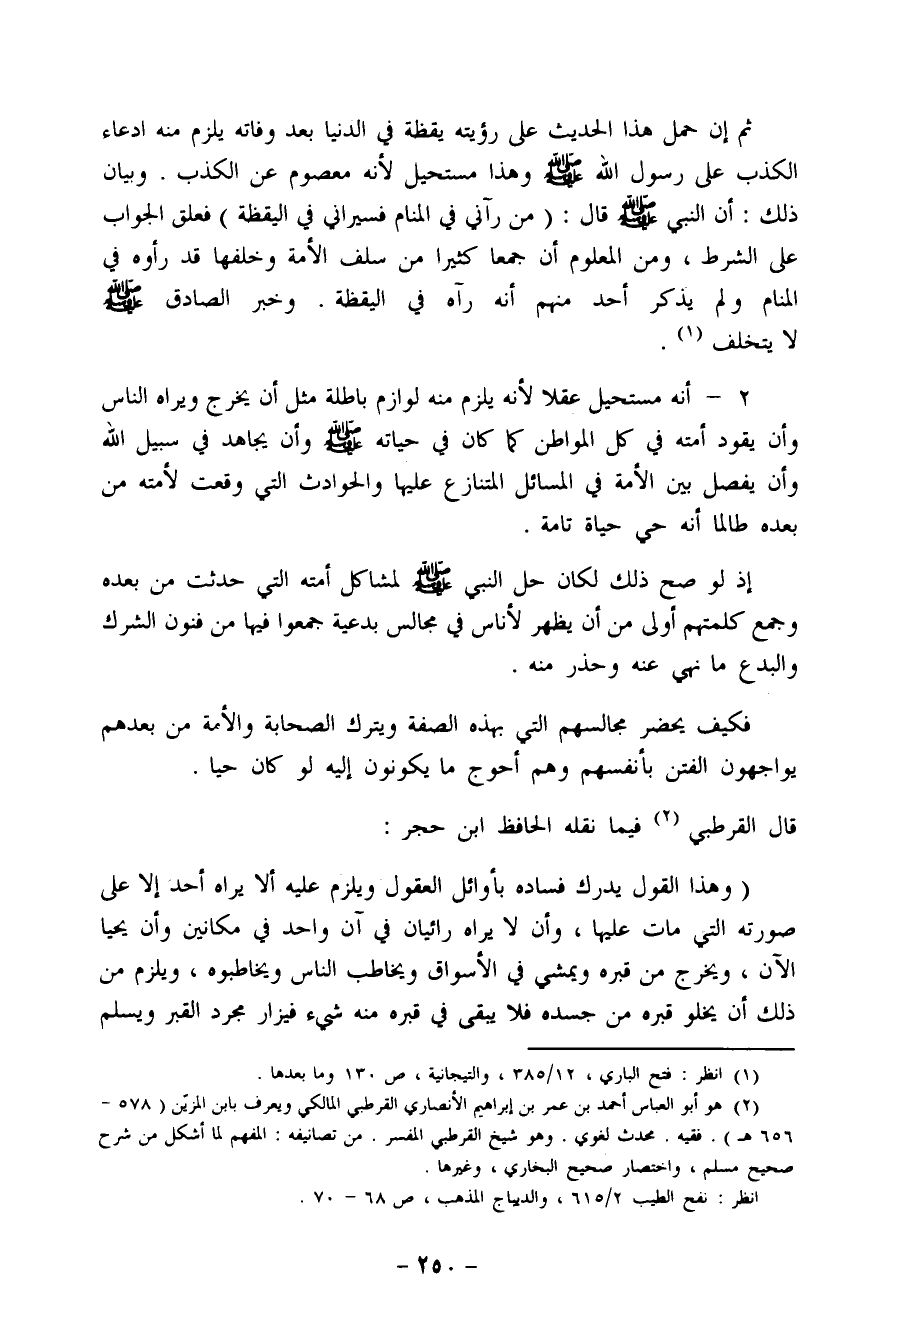 ثم إن حمل هذا الحديث على رؤيته يقظة في الدنيا بعد وفاته يلزم منه ادعاء
الكذب على رسول الله ﷺ وهذا مستحيل لأنه معصوم عن الكذب . وبيان
ذلك : أن النبي ﷺ قال : ( من رآني في المنام فسيراني في اليقظة ) فعلق الجواب
على الشرط ، ومن المعلوم أن جمعا كثيرا من سلف الأمة وخلفها قد رأوه في
المنام ولم يذكر أحد منهم أنه رآه في اليقظة . وخبر الصادق ﷺ
لا يتخلف (١) .
٢ – أنه مستحيل عقلا لأنه يلزم منه لوازم باطلة مثل أن يخرج ويراه الناس
وأن يقود أمته في كل المواطن كما كان في حياته ﷺ وأن يجاهد في سبيل الله
وأن يفصل بين الأمة في المسائل المتنازع عليها والحوادث التي وقعت لأمته من
بعده طالما أنه حي حياة تامة .
إذ لو صح ذلك لكان حل النبي ﷺ لمشاكل أمته التي حدثت من بعده
وجمع كلمتهم أولى من أن يظهر لأناس في مجالس بدعية جمعوا فيها من فنون الشرك
والبدع ما نهي عنه وحذر منه .
فكيف يحضر مجالسهم التي بهذه الصفة ويترك الصحابة والأمة من بعدهم
يواجهون الفتن بأنفسهم وهم أحوج ما يكونون إليه لو كان حيا .
قال القرطبي (٢) فيما نقله الحافظ ابن حجر :
( وهذا القول يدرك فساده بأوائل العقول ويلزم عليه ألا يراه أحد إلا على
صورته التي مات عليها ، وأن لا يراه رائيان في آن واحد في مكانين وأن يحيا
الآن ، ويخرج من قبره ويمشي في الأسواق ويخاطب الناس ويخاطبوه ، ويلزم من
ذلك أن يخلو قبره من جسده فلا يبقى في قبره منه شيء فيزار مجرد القبر ويسلم
(١) انظر : فتح الباري ، ٣٨٥/١٢ ، والتيجانية ، ص ١٣٠ وما بعدها .
(٢) هو أبو العباس أحمد بن عمر بن إبراهيم الأنصاري القرطبي المالكي ويعرف بابن المزيّن ( ٥٧٨ –
٦٥٦ هـ ) . فقيه . محدث لغوي . وهو شيخ القرطبي المفسر . من تصانيفه : المفهم لما أشكل من شرح
صحيح مسلم ، واختصار صحيح البخاري ، وغيرها .
انظر : نفح الطيب ٦١٥/٢ ، والديباج المذهب ، ص ٦٨ – ٧٠ .
– ٢٥٠ –